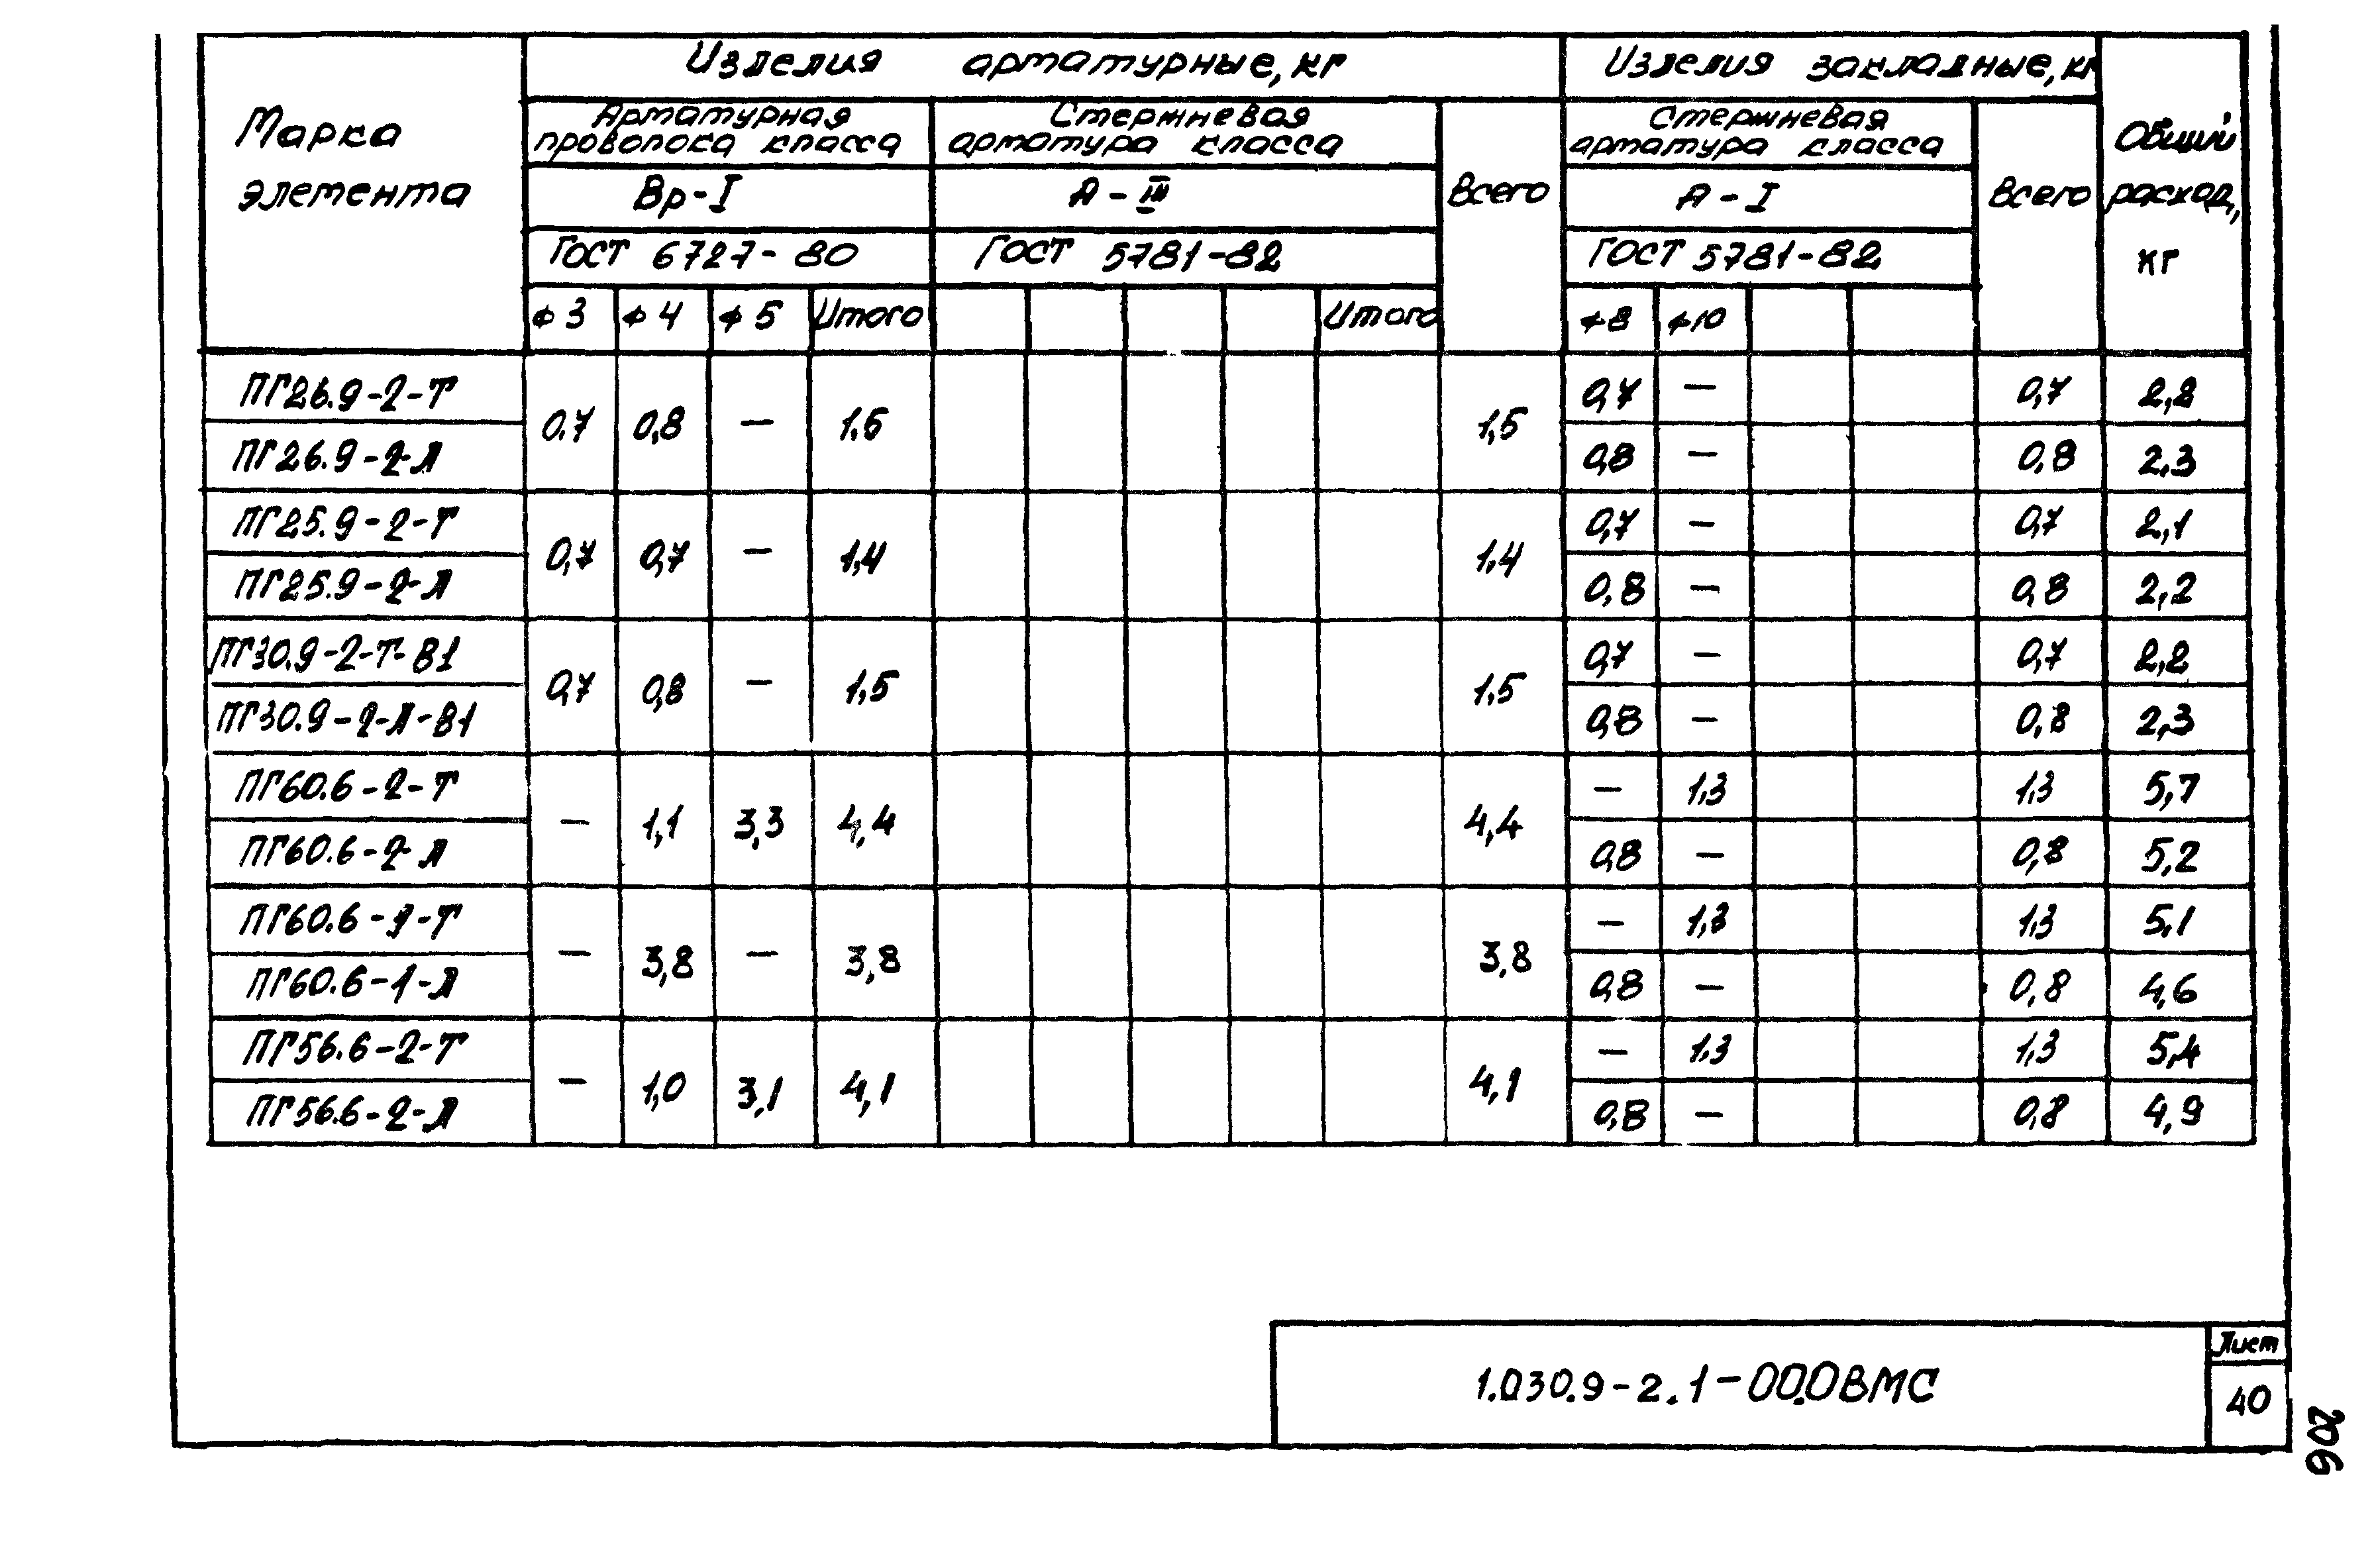 Марка
элемента
Изделия арматурные, кг
Изделия закладные, кг
Общий
расход,
кг
Арматурная
проволока класса
Стержневая
арматура класса
Всего
Стержневая
арматура класса
Всего
Вр-I
А-III
А-I
ГОСТ 6727-80
ГОСТ 5781-82
ГОСТ 5781-82
ф3 ф4 ф5 Итого Итого ф8 ф10
ПГ26.9-2-Т 0,7 — 0,7 2,2
0.7 0,8 — 1.5 1,5
ПГ26.9-2-Л 0,8 — 0,8 2,3
ПГ25.9-2-Т 0,7 — 0,7 2,1
0,7 0,7 — 1,4 1,4
ПГ25.9-2-Л 0,8 — 0,8 2,2
ПГ30.9-2-Т-В1 0,7 — 0,7 2,2
0,7 0,8 — 1,5 1,5
ПГ30.9-2-Л-В1 0,8 — 0,8 2,3
ПГ60.6-2-Т — 1,3 1,3 5,7
— 1,1 3,3 4,4 4,4
ПГ60.6-2-Л 0,8 — 0,8 5,2
ПГ60.6-1-Т — 1,3 1,3 5,1
— 3,8 — 3,8 3,8
ПГ60.6-1-Л 0,8 — 0,8 4,6
ПГ56.6-2-Т — 1,3 1,3 5,4
— 1,0 3,1 4,1 4,1
ПГ56.6-2-Л 0,8 — 0,8 4,9
1.030.9-2.1-00.0ВМС
Лист
40
206